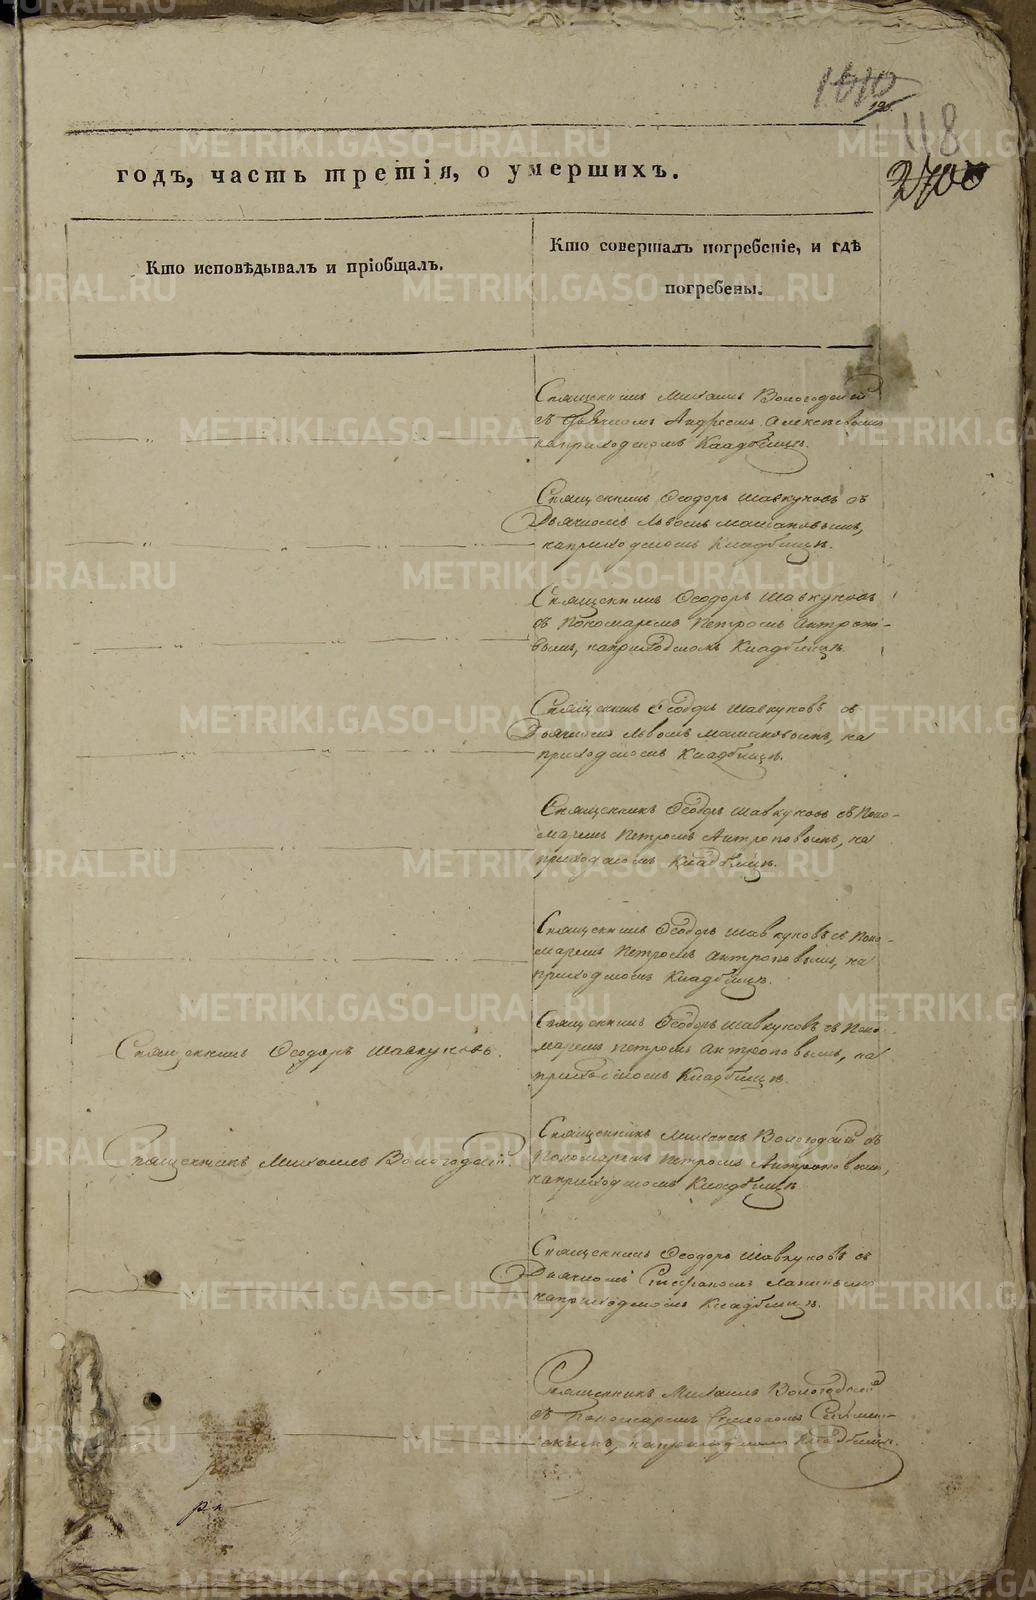 1610
195.
118
2700
годъ, часть третія, о умершихъ.
Кто исповѣдывалъ и пріобщалъ.
Кто совершалъ погребеніе, и гдѣ
погребены.
Священникъ Михаилъ Вологодскій
съ Дьячкомъ Андреемъ Алексѣевымъ
на приходскомъ Кладбищѣ.
Священникъ Ѳеодоръ Шавкуновъ съ
Дьячкомъ Львомъ
на приходскомъ Кладбищѣ.
Священникъ Ѳеодоръ Шавкуновъ
съ Пономаремъ Петромъ Антропо-
вымъ, на приходскомъ Кладбищѣ.
Священникъ Ѳеодоръ Шавкуновъ съ
Дьячкомъ Львомъ на
приходскомъ Кладбищѣ.
Священникъ Ѳеодоръ Шавкуновъ съ Поно-
маремъ Петромъ Антроповымъ, на
приходскомъ Кладбищѣ.
Священникъ Ѳеодоръ Шавкуновъ съ Поно-
маремъ Петромъ Антроповымъ, на
приходскомъ Кладбищѣ.
Священникъ Ѳеодоръ Шавкуновъ.
Священникъ Ѳеодоръ Шавкуновъ съ Поно-
маремъ Петромъ Антроповымъ, на
приходскомъ Кладбищѣ.
Священникъ Михаилъ Вологодскій.
Священникъ Михаилъ Вологодскій съ
Пономаремъ Петромъ Антроповымъ,
на приходскомъ Кладбищѣ
Священникъ Ѳеодоръ Шавкуновъ съ
Дьячкомъ Стефаномъ
на приходскомъ Кладбищѣ.
Священникъ Михаилъ Вологодскій
съ Пономаремъ
на приходскомъ Кладбищѣ.
METRIKI.GASO-URAL.RU